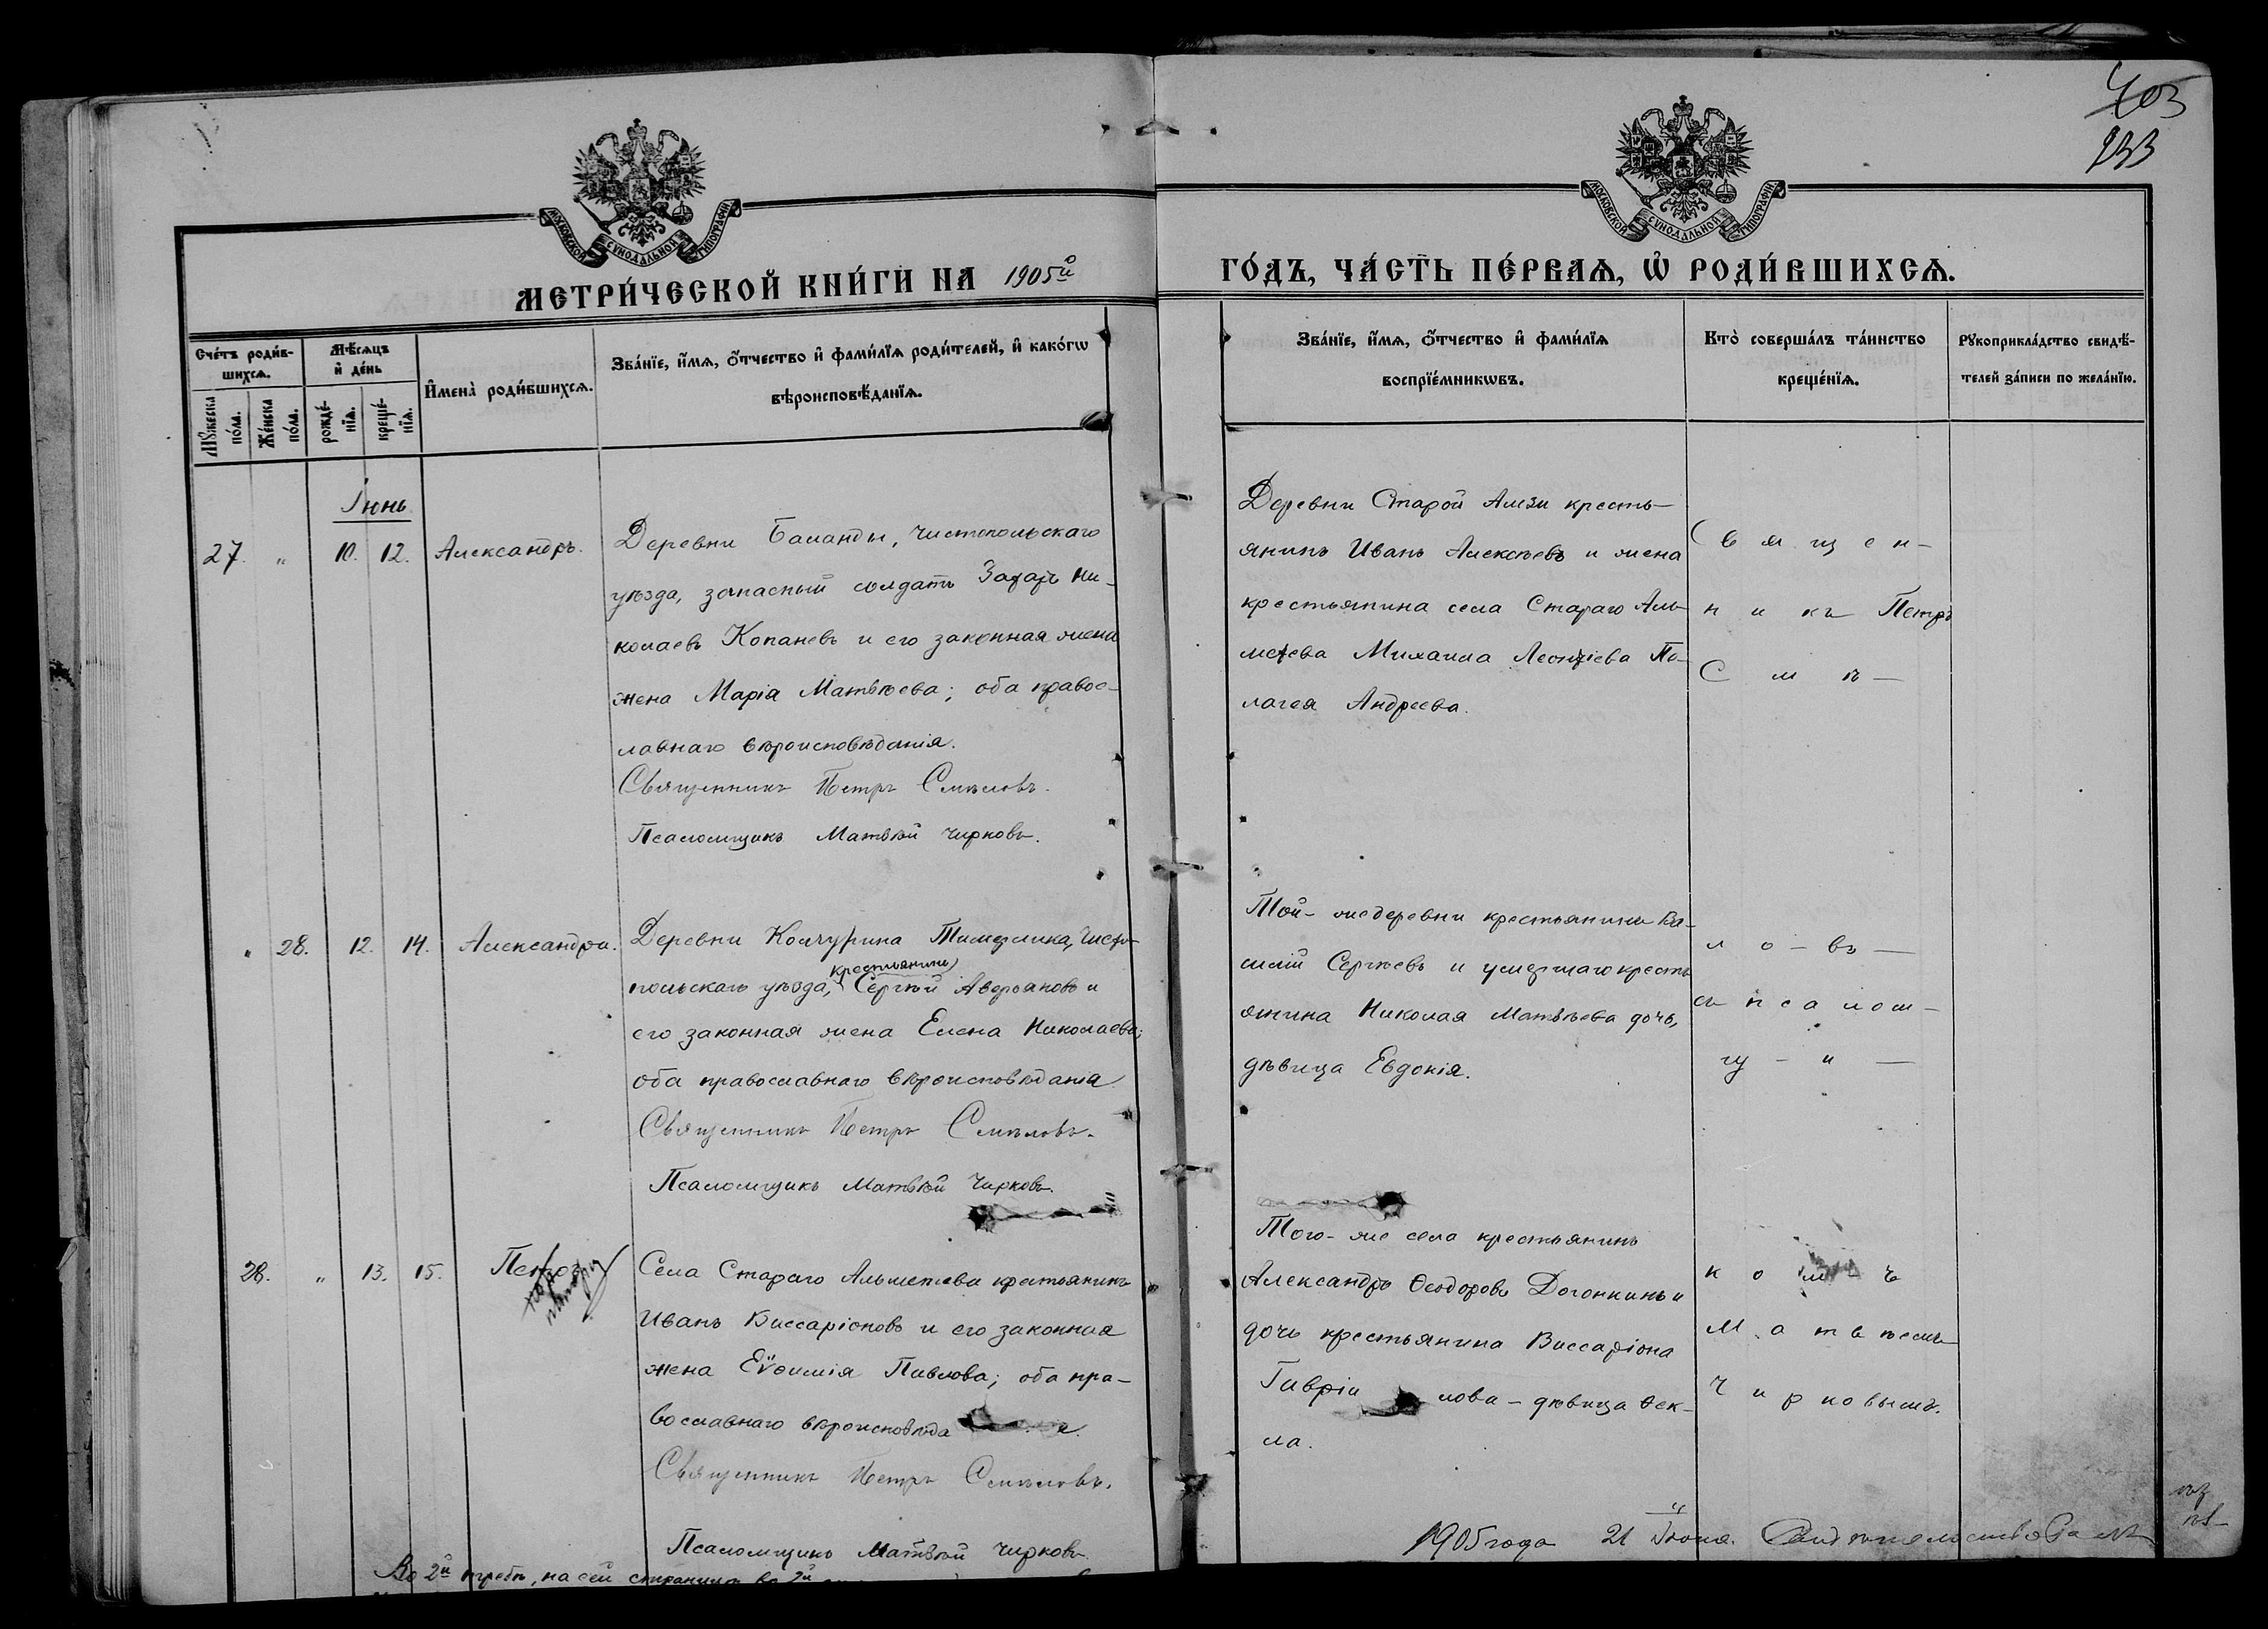 403
233
МОСКОВСКОЙ СУНОДАЛЬНОЙ ТИПОГРАФІИ
МОСКОВСКОЙ СУНОДАЛЬНОЙ ТИПОГРАФІИ
МЕТРИ́ЧЕСКОЙ КНИ́ГИ НА 1905й
ГО́ДЪ, ЧА́СТЬ ПЕ́РВАѦ, Ѡ҆ РОДИ́ВШИХСѦ.
Сче́тъ роди́в-
шихсѧ.
Мꙋ́жеска по́ла.
Же́нска по́ла.
Мѣ́сѧцъ и҆ де́нь
рожде́-
нїѧ.
креще́-
нїѧ.
И҆мена̀ роди́вшихсѧ.
Зва́нїе, и҆́мѧ, ѻ҆́тчество и҆ фами́лїѧ роди́телей, и҆ како́гѡ
вѣроисповѣ́данїѧ.
Зва́нїе, и҆́мѧ, ѻ҆́тчество и҆ фами́лїѧ
воспрїе́мникѡвъ.
Кто̀ соверша́лъ та́инство
креще́нїѧ.
Рꙋкоприкла́дство свидѣ́-
телей за́писи по жела́нїю.
Іюнь
27. " 10. 12. Александръ.
Деревни Баланды, Чистопольскаго
уѣзда, запасный солдатъ Захаръ Ни-
колаевъ Копаневъ и его законная жена
жена Марія Матвѣева; оба правос-
лавнаго вѣроисповѣданія.
Священникъ Петръ Смѣловъ.
Псаломщикъ Матвѣй Чирковъ.
Деревни Старой Амзи кресть-
янинъ Иванъ Алексѣевъ и жена
крестьянина села Стараго Аль-
метева Михаила Леонтіева Пе-
лагея Андреева.
Священ-
никъ Петръ
Смѣ-
" 28. 12. 14. Александра.
Деревни Колчурина Чисто-
крестьянинъ
польскаго уѣзда, Сергѣй Аверьяновъ и
его законная жена Елена Николаева;
оба православнаго вѣроисповѣданія
Священникъ Петръ Смѣловъ.
Псаломщикъ Матвѣй Чирковъ.
Той-же деревни крестьянинъ Ва-
силій Сергѣевъ и умершаго кресть-
янина Николая Матвѣева дочь,
дѣвица Евдокія.
ло-въ-
съ псалом-
щ-и-
28. " 13. 15. Петръ
Села Стараго Альметева крестьянинъ
Иванъ Виссаріоновъ и его законная
жена Еѵѳимія Павлова; оба пра-
вославнаго вѣроисповѣда
Священникъ Петръ Смѣловъ.
Псаломщикъ Матвѣй Чирковъ.
Того-же села крестьянинъ
Александръ Ѳеодоровъ Догонкинъ и
дочь крестьянина Виссаріона
Гавріи лова - дѣвица Ѳек-
ла.
комъ
Матвѣемъ
Чирковымъ.
1905 года 21 Іюня. Свидѣтельствовалъ
Во 2й требѣ, на сей страницѣ во 2й